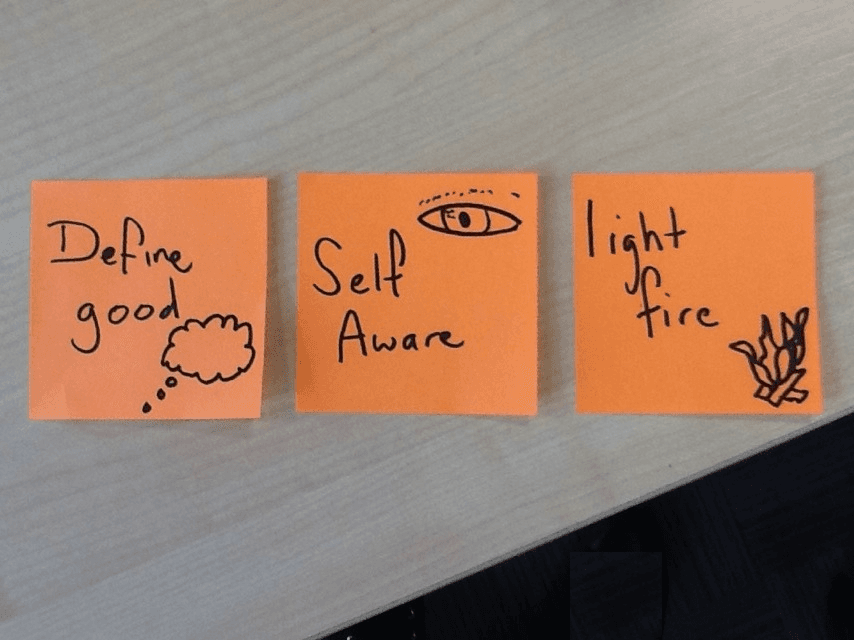 Define
good
Self
Aware
light
fire